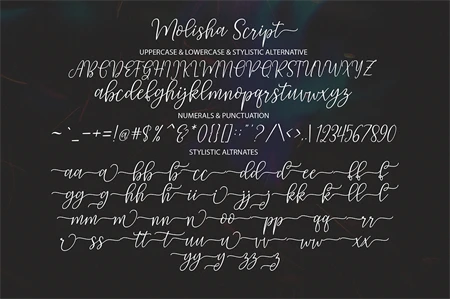 Molisha Script
UPPERCASE & LOWERCASE & STYLISTIC ALTERNATIVE
ABCDEFGHIJKLMNOPQRSTUVWXYZ
abcdefghijklmnopqrstuvwxyz
NUMERALS & PUNCTUATION
~`_-+=!@#$%^&*(){}[]:;"'?/\<>.,|1234567890
STYLISTIC ALTRNATES
aa bb cc dd ee ff
gg hh ii jj kk ll
mm nn oo pp qq
rr ss tt uu vv ww xx
yy zz